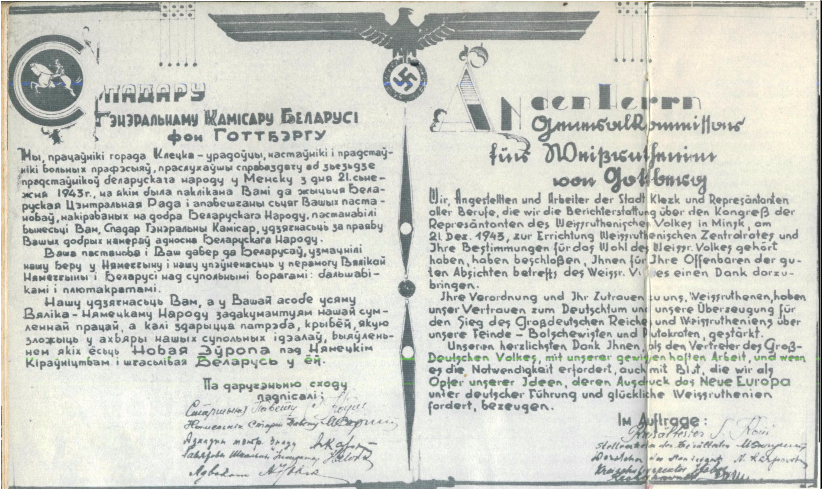 Спадару
Гэнэральнаму Камісару Беларусі
фон Готтбэргу
Мы, працаўнікі горада Клецка – урадоўцы, настаўнікі і прадстаў-
нікі вольных прафэсыяў, праслухаўшы справаздачу аб зьезьдзе
прадстаўнікоў беларускага народу у Менску з дня 21. сьне-
жня 1943 г., на якім была паклікана Вамі да жыцьця Бела-
руская Цэнтральная Рада і апавешчаны сьцяг Вашых паста-
новаў, накіраваных на добра Беларускага Народу, пастанавілі
вынесьці Вам, Спадар Гэнэральны Камісар, удзячнасьць за праяву
Вашых добрых намераў адносна Беларускага Народу.
Ваша пастанова і Ваш давер да Беларусаў, узмацнілі
нашу веру у Нямеччыну і нашу упэўненасьць у перамогу Вялікай
Нямеччыны і Беларусі над супольнымі ворагамі: бальшаві-
камі і плютакратамі.
Нашу удзячнасьць Вам, а у Вашай асобе усяму
Вяліка-Нямецкаму Народу задакумантуям нашай сум-
леннай працай, а калі здарыцца патрэба, крывёй, якую
зложыць у ахвяры нашых супольных ідэалаў, выяўлень-
нем якіх ёсьць Новая Эўропа пад Нямецкім
Кіраўніцтвам і шчасьлівая Беларусь у ёй.
Па даручэньню сходу
падпісалі:
An den Herrn
Generalkommissar
für Weißruthenien
von Gottberg
Wir, Angestellten und Arbeiter der Stadt Klezk und Repräsentanten
aller Berufe, die wir die Berichterstattung über den Kongreß der
Repräsentanten des Weissruthenischen Volkes in Minsk, am
21. Dez. 1943, zur Errichtung Weissruthenischen Zentralrates und
Ihre Bestimmungen für das Wohl des Weissr. Volkes gehört
haben, haben beschloßen, Ihnen für Ihre Offenbaren der gu-
ten Absichten betreffs des Weissr. einen Dank darzu-
bringen.
Ihre Verordnung und Ihr Zutrauen zu uns, Weissruthenen, haben
unser Vertrauen zum Deutschtum und unsere Überzeugung für
den Sieg des Großdeutschen Reiches und Weissrutheniens über
unsere Feinde – Bolschewisten und Plutokraten, gestärkt.
Unseren herzlichsten Dank Ihnen, als den Vertreter des Groß-
Deutschen Volkes, mit unserer gewissenhaften Arbeit, und wenn
es die Notwendigkeit erfordert, auch mit Blut, die wir als
Opfer unserer Ideen, deren Ausdruck das Neue Europa
unter deutscher Führung und glückliche Weissruthenien
fordert, bezeugen.
Im Auftrage: